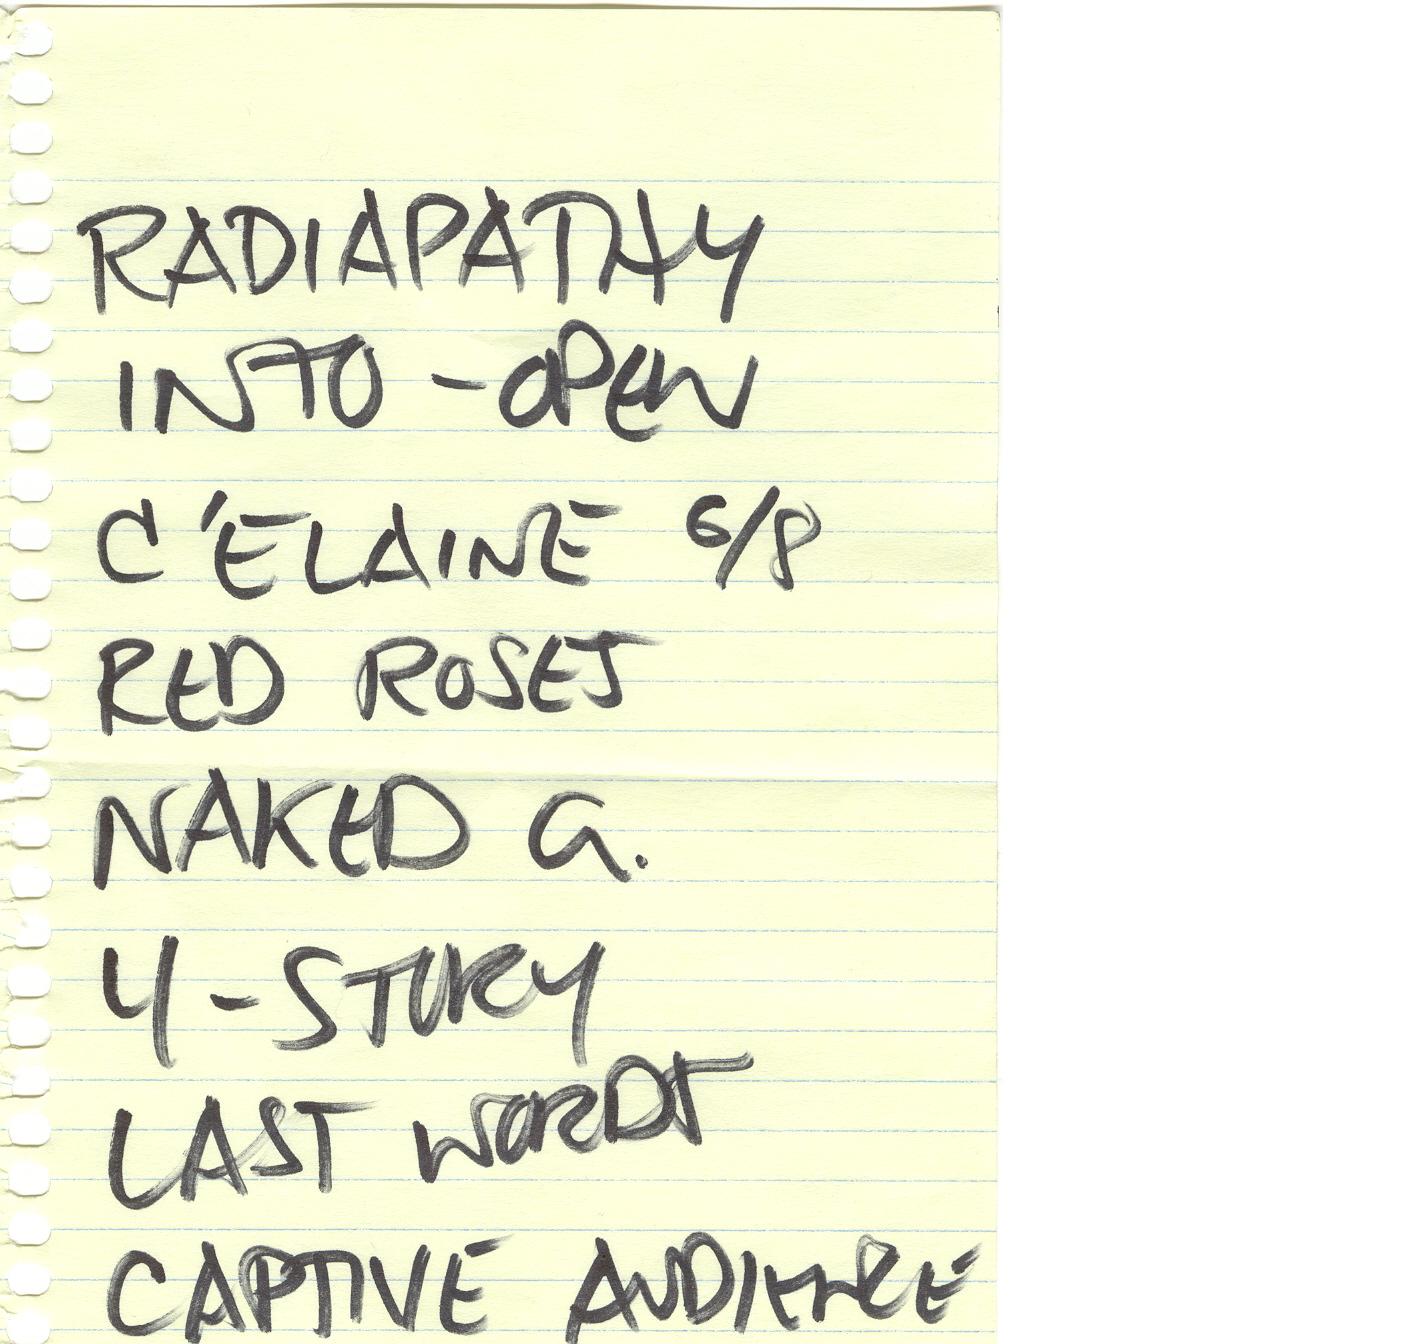 RADIAPATHY
INTO - OPEN
C'ELAINE 6/8
RED ROSES
NAKED G.
4-STORY
LAST WORDS
CAPTIVE AUDIENCE